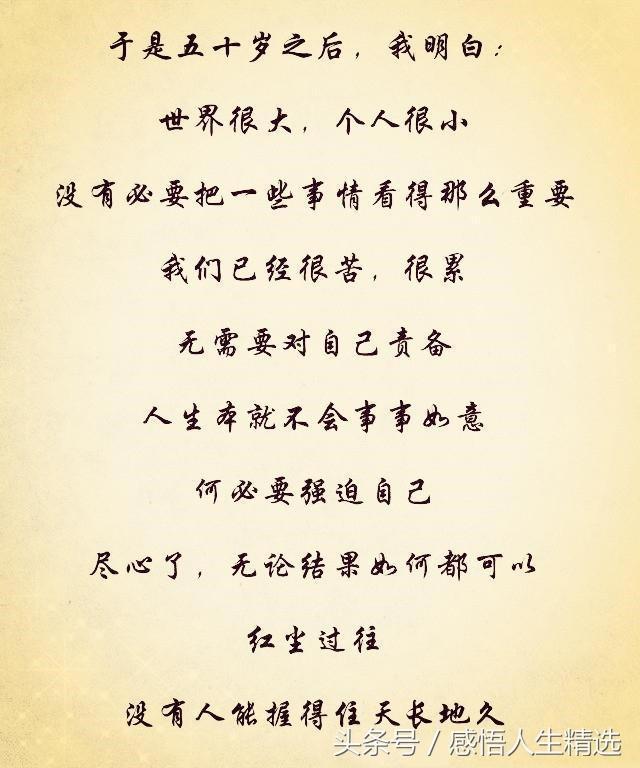 于是五十岁之后，我明白：
世界很大，个人很小
没有必要把一些事情看得那么重要
我们已经很苦，很累
无需要对自己责备
人生本就不会事事如意
何必要强迫自己
尽心了，无论结果如何都可以
红尘过往
没有人能握得住天长地久
头条号 / 感悟人生精选